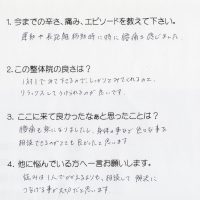 1. 今までの辛さ、痛み、エピソードを教えて下さい。
運動や長距離移動時に特に腰痛を感じました
2.この整体院の良さは?
1対1でみて下さるのでしっかりとみてくれるのと、
リラックスしてうけられるのが良いです。
3. ここに来て良かったなぁと思ったことは?
腰痛も楽になりましたし、身体の事など色々な事を
相談できるのがとても良かったと思います
4. 他に悩んでいる方へ一言お願いします。
悩みは1人でかかえるよりも、相談して解決に
つなげる事が大切だと思います